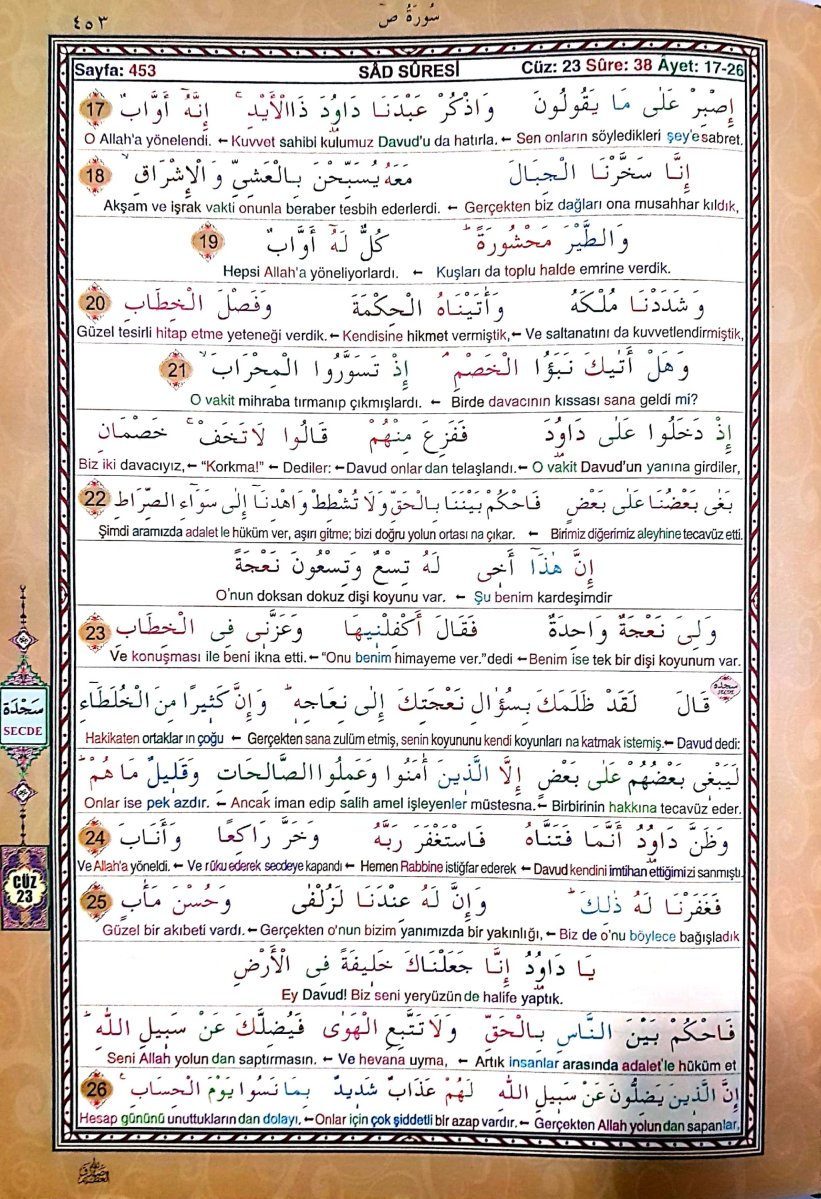 سُورَةُ صٓ
٤٥٣
Sayfa: 453 SÂD SÛRESİ Cüz: 23 Sûre: 38 Âyet: 17-26
اِصْبِرْ عَلٰى مَا يَقُولُونَ وَاذْكُرْ عَبْدَنَا دَاوُدَ ذَا الْاَيْدِۚ اِنَّهُٓ اَوَّابٌ 17
O Allah'a yönelendi. ← Kuvvet sahibi kulumuz Davud'u da hatırla. ← Sen onların söyledikleri şey'e sabret.
اِنَّا سَخَّرْنَا الْجِبَالَ مَعَهُ يُسَبِّحْنَ بِالْعَشِيِّ وَالْاِشْرَاقِۙ 18
Akşam ve işrak vakti onunla beraber tesbih ederlerdi. ← Gerçekten biz dağları ona musahhar kıldık,
وَالطَّيْرَ مَحْشُورَةًۜ كُلٌّ لَهُٓ اَوَّابٌ 19
Hepsi Allah'a yöneliyorlardı. ← Kuşları da toplu halde emrine verdik.
وَشَدَدْنَا مُلْكَهُ وَاٰتَيْنَاهُ الْحِكْمَةَ وَفَصْلَ الْخِطَابِ 20
Güzel tesirli hitap etme yeteneği verdik. ← Kendisine hikmet vermiştik, ← Ve saltanatını da kuvvetlendirmiştik,
وَهَلْ اَتٰيكَ نَبَؤُا الْخَصْمِۢ اِذْ تَسَوَّرُوا الْمِحْرَابَۙ 21
O vakit mihraba tırmanıp çıkmışlardı. ← Birde davacının kıssası sana geldi mi?
اِذْ دَخَلُوا عَلٰى دَاوُدَ فَفَزِعَ مِنْهُمْ قَالُوا لَا تَخَفْۚ خَصْمَانِ
Biz iki davacıyız, ← “Korkma!” ← Dediler: ← Davud onlardan telaşlandı. ← O vakit Davud'un yanına girdiler,
بَغٰى بَعْضُنَا عَلٰى بَعْضٍ فَاحْكُمْ بَيْنَنَا بِالْحَقِّ وَلَا تُشْطِطْ وَاهْدِنَٓا اِلٰى سَوَٓاءِ الصِّرَاطِ 22
Şimdi aramızda adalet le hüküm ver, aşırı gitme; bizi doğru yolun ortası na çıkar. ← Birimiz diğerimiz aleyhine tecavüz etti.
اِنَّ هٰذَٓا اَخٖي لَهُ تِسْعٌ وَتِسْعُونَ نَعْجَةً
O'nun doksan dokuz dişi koyunu var. ← Şu benim kardeşimdir
وَلِيَ نَعْجَةٌ وَاحِدَةٌ فَقَالَ اَكْفِلْنٖيهَا وَعَزَّنٖي فِي الْخِطَابِ 23
Ve konuşması ile beni ikna etti. ← “Onu benim himayeme ver.”dedi ← Benim ise tek bir dişi koyunum var.
سجده
قَالَ لَقَدْ ظَلَمَكَ بِسُؤَالِ نَعْجَتِكَ اِلٰى نِعَاجِهٖۜ وَاِنَّ كَثٖيرًا مِنَ الْخُلَطَٓاءِ
Hakikaten ortaklar ın çoğu ← Gerçekten sana zulüm etmiş, senin koyununu kendi koyunları na katmak istemiş. ← Davud dedi:
لَيَبْغٖي بَعْضُهُمْ عَلٰى بَعْضٍ اِلَّا الَّذٖينَ اٰمَنُوا وَعَمِلُوا الصَّالِحَاتِ وَقَلٖيلٌ مَا هُمْۜ
Onlar ise pek azdır. ← Ancak iman edip salih amel işleyenler müstesna. ← Birbirinin hakkına tecavüz eder.
وَظَنَّ دَاوُدُ اَنَّمَا فَتَنَّاهُ فَاسْتَغْفَرَ رَبَّهُ وَخَرَّ رَاكِعًا وَاَنَابَ 24
Ve Allah'a yöneldi. ← Ve rüku ederek secdeye kapandı ← Hemen Rabbine istiğfar ederek ← Davud kendini imtihan ettiğimizi sanmıştı.
فَغَفَرْنَا لَهُ ذٰلِكَۜ وَاِنَّ لَهُ عِنْدَنَا لَزُلْفٰى وَحُسْنَ مَاٰبٍ 25
Güzel bir akıbeti vardı. ← Gerçekten o'nun bizim yanımızda bir yakınlığı, ← Biz de o'nu böylece bağışladık
يَا دَاوُدُ اِنَّا جَعَلْنَاكَ خَلٖيفَةً فِي الْاَرْضِ
Ey Davud! Biz seni yeryüzün de halife yaptık.
فَاحْكُمْ بَيْنَ النَّاسِ بِالْحَقِّ وَلَا تَتَّبِعِ الْهَوٰى فَيُضِلَّكَ عَنْ سَبٖيلِ اللّٰهِۜ
Seni Allah yolun dan saptırmasın. ← Ve hevana uyma, ← Artık insanlar arasında adalet'le hüküm et
اِنَّ الَّذٖينَ يَضِلُّونَ عَنْ سَبٖيلِ اللّٰهِ لَهُمْ عَذَابٌ شَدٖيدٌ بِمَا نَسُوا يَوْمَ الْحِسَابِۚ 26
Hesap gününü unuttukların dan dolayı, ← Onlar için çok şiddetli bir azap vardır. ← Gerçekten Allah yolun dan sapanlar,
سَجْدَة
SECDE
CÜZ
23